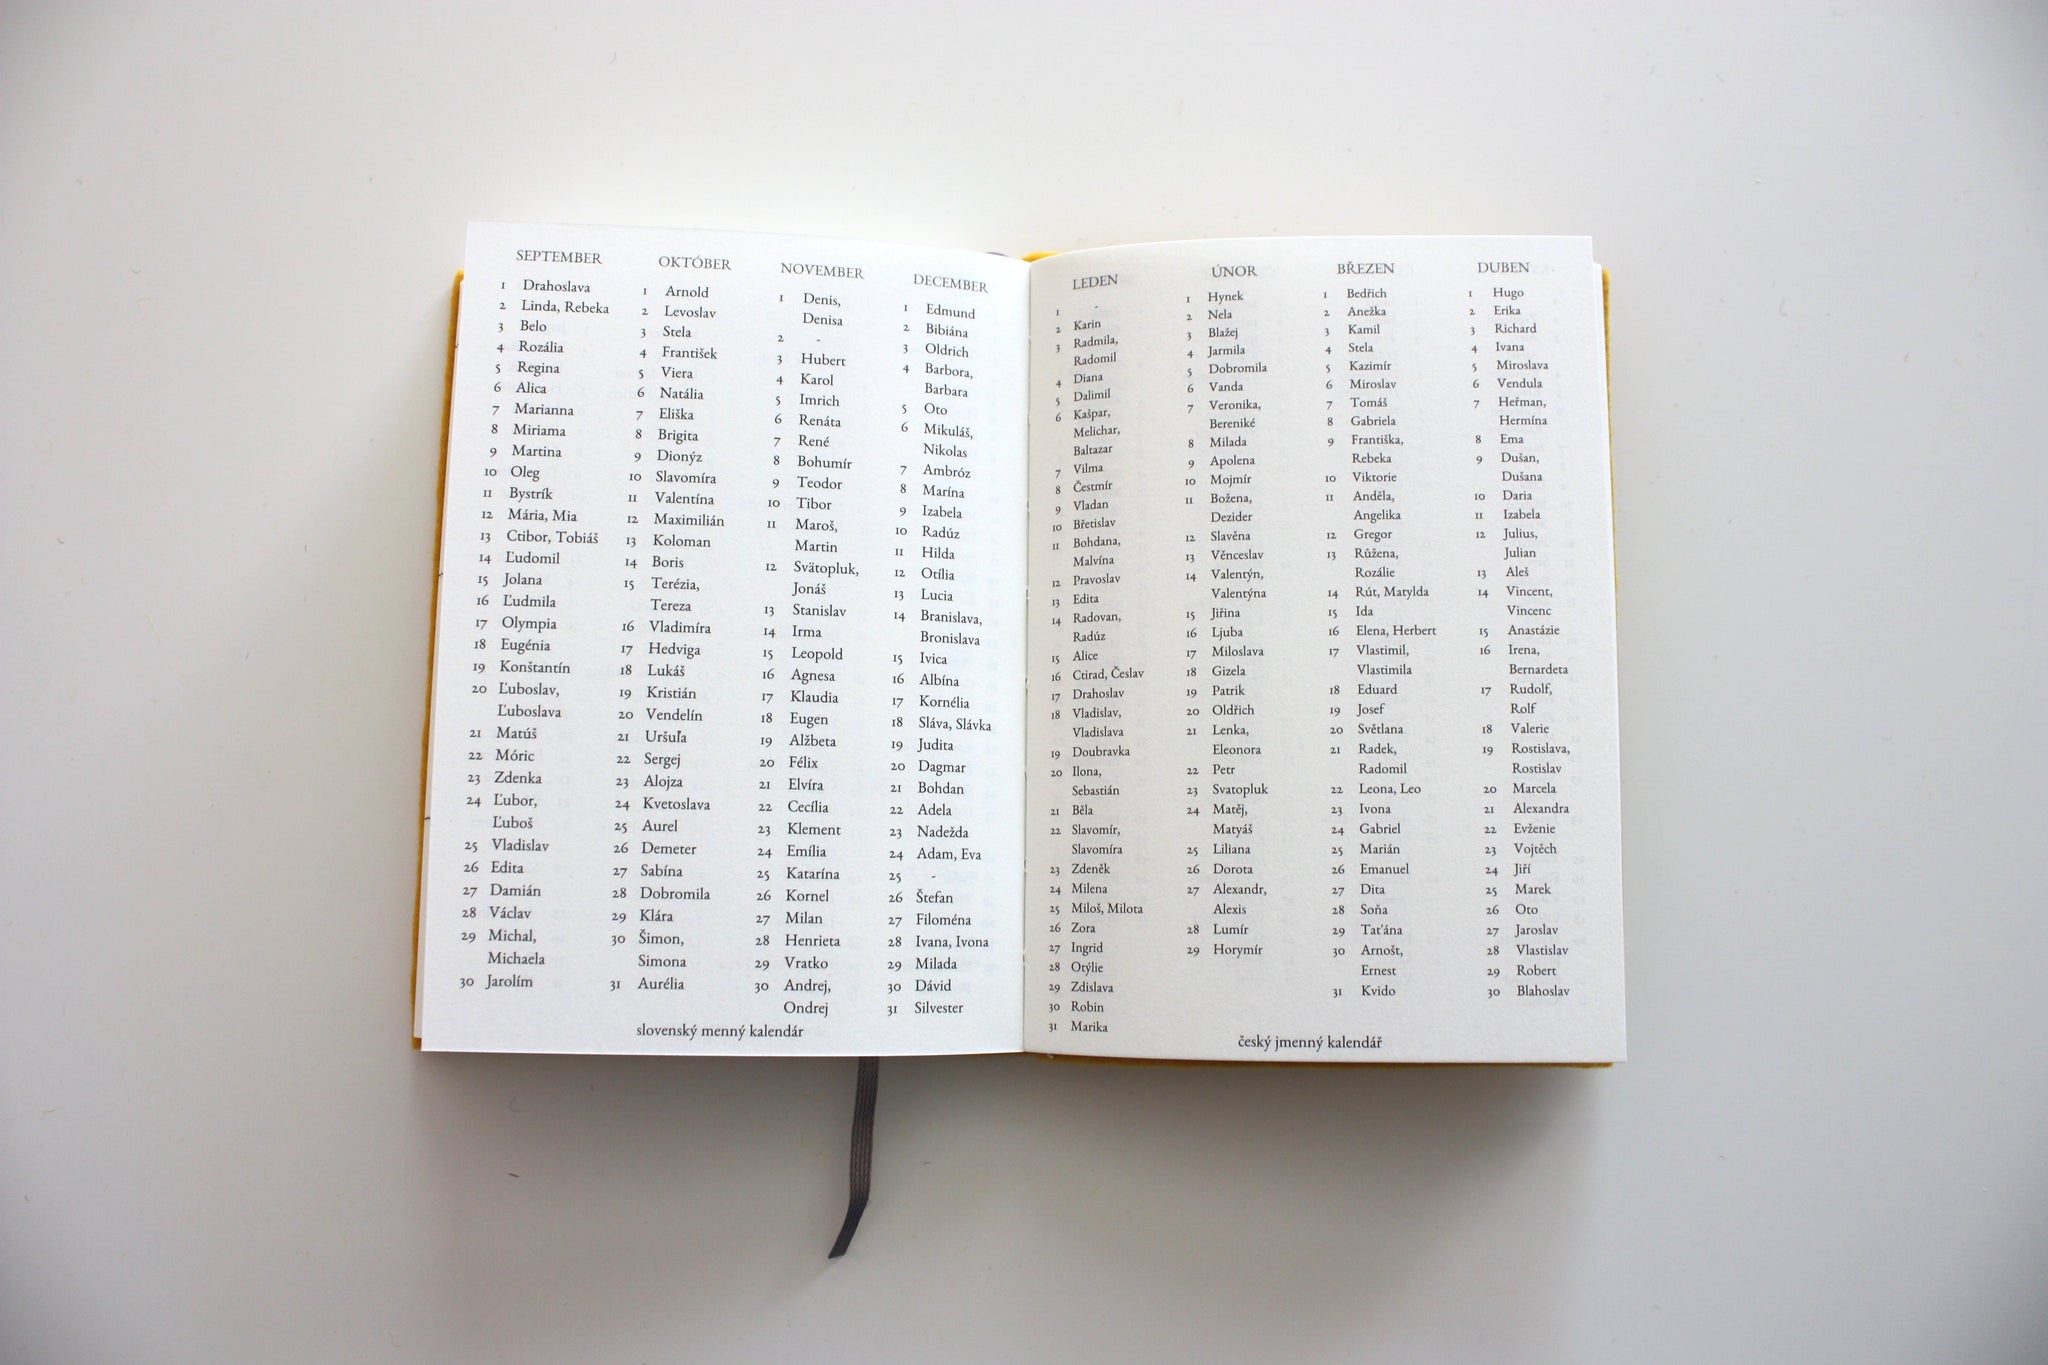 SEPTEMBER
1 Drahoslava
2 Linda, Rebeka
3 Belo
4 Rozália
5 Regina
6 Alica
7 Marianna
8 Miriama
9 Martina
10 Oleg
11 Bystrík
12 Mária, Mia
13 Ctibor, Tobiáš
14 Ľudomil
15 Jolana
16 Ľudmila
17 Olympia
18 Eugénia
19 Konštantín
20 Ľuboslav,
Ľuboslava
21 Matúš
22 Móric
23 Zdenka
24 Ľubor,
Ľuboš
25 Vladislav
26 Edita
27 Damián
28 Václav
29 Michal,
Michaela
30 Jarolím
OKTÓBER
1 Arnold
2 Levoslav
3 Stela
4 František
5 Viera
6 Natália
7 Eliška
8 Brigita
9 Dionýz
10 Slavomíra
11 Valentína
12 Maximilián
13 Koloman
14 Boris
15 Terézia,
Tereza
16 Vladimíra
17 Hedviga
18 Lukáš
19 Kristián
20 Vendelín
21 Uršuľa
22 Sergej
23 Alojza
24 Kvetoslava
25 Aurel
26 Demeter
27 Sabína
28 Dobromila
29 Klára
30 Šimon,
Simona
31 Aurélia
NOVEMBER
1 Denis,
Denisa
2 -
3 Hubert
4 Karol
5 Imrich
6 Renáta
7 René
8 Bohumír
9 Teodor
10 Tibor
11 Maroš,
Martin
12 Svätopluk,
Jonáš
13 Stanislav
14 Irma
15 Leopold
16 Agnesa
17 Klaudia
18 Eugen
19 Alžbeta
20 Félix
21 Elvíra
22 Cecília
23 Klement
24 Emília
25 Katarína
26 Kornel
27 Milan
28 Henrieta
29 Vratko
30 Andrej,
Ondrej
DECEMBER
1 Edmund
2 Bibiána
3 Oldrich
4 Barbora,
Barbara
5 Oto
6 Mikuláš,
Nikolas
7 Ambróz
8 Marína
9 Izabela
10 Radúz
11 Hilda
12 Otília
13 Lucia
14 Branislava,
Bronislava
15 Ivica
16 Albína
17 Kornélia
18 Sláva, Slávka
19 Judita
20 Dagmar
21 Bohdan
22 Adela
23 Nadežda
24 Adam, Eva
25 -
26 Štefan
27 Filoména
28 Ivana, Ivona
29 Milada
30 Dávid
31 Silvester
slovenský menný kalendár
LEDEN
1 -
2 Karin
3 Radmila,
Radomil
4 Diana
5 Dalimil
6 Kašpar,
Melichar,
Baltazar
7 Vilma
8 Čestmír
9 Vladan
10 Břetislav
11 Bohdana,
Malvína
12 Pravoslav
13 Edita
14 Radovan,
Radúz
15 Alice
16 Ctirad, Česlav
17 Drahoslav
18 Vladislav,
Vladislava
19 Doubravka
20 Ilona,
Sebastián
21 Běla
22 Slavomír,
Slavomíra
23 Zdeněk
24 Milena
25 Miloš, Milota
26 Zora
27 Ingrid
28 Otýlie
29 Zdislava
30 Robin
31 Marika
ÚNOR
1 Hynek
2 Nela
3 Blažej
4 Jarmila
5 Dobromila
6 Vanda
7 Veronika,
Bereniké
8 Milada
9 Apolena
10 Mojmír
11 Božena,
Dezider
12 Slavěna
13 Věnceslav
14 Valentýn,
Valentýna
15 Jiřina
16 Ljuba
17 Miloslava
18 Gizela
19 Patrik
20 Oldřich
21 Lenka,
Eleonora
22 Petr
23 Svatopluk
24 Matěj,
Matyáš
25 Liliana
26 Dorota
27 Alexandr,
Alexis
28 Lumír
29 Horymír
BŘEZEN
1 Bedřich
2 Anežka
3 Kamil
4 Stela
5 Kazimír
6 Miroslav
7 Tomáš
8 Gabriela
9 Františka,
Rebeka
10 Viktorie
11 Anděla,
Angelika
12 Gregor
13 Růžena,
Rozálie
14 Rút, Matylda
15 Ida
16 Elena, Herbert
17 Vlastimil,
Vlastimila
18 Eduard
19 Josef
20 Světlana
21 Radek,
Radomil
22 Leona, Leo
23 Ivona
24 Gabriel
25 Marián
26 Emanuel
27 Dita
28 Soňa
29 Taťána
30 Arnošt,
Ernest
31 Kvido
DUBEN
1 Hugo
2 Erika
3 Richard
4 Ivana
5 Miroslava
6 Vendula
7 Heřman,
Hermína
8 Ema
9 Dušan,
Dušana
10 Daria
11 Izabela
12 Julius,
Julian
13 Aleš
14 Vincent,
Vincenc
15 Anastázie
16 Irena,
Bernardeta
17 Rudolf,
Rolf
18 Valerie
19 Rostislava,
Rostislav
20 Marcela
21 Alexandra
22 Evženie
23 Vojtěch
24 Jiří
25 Marek
26 Oto
27 Jaroslav
28 Vlastislav
29 Robert
30 Blahoslav
český jmenný kalendář